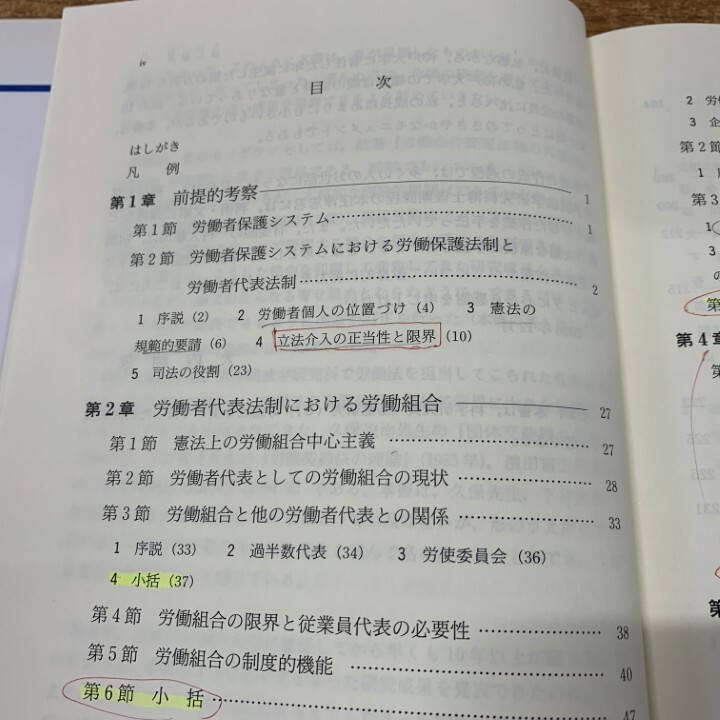 iv
目　次
はしがき
凡　例
第1章　前提的考察 1
第1節　労働者保護システム 1
第2節　労働者保護システムにおける労働保護法制と
労働者代表法制 2
1　序説(2)　2　労働者個人の位置づけ(4)　3　憲法の
規範的要請(6)　4　立法介入の正当性と限界(10)
5　司法の役割(23)
第2章　労働者代表法制における労働組合 27
第1節　憲法上の労働組合中心主義 27
第2節　労働者代表としての労働組合の現状 28
第3節　労働組合と他の労働者代表との関係 33
1　序説(33)　2　過半数代表(34)　3　労使委員会(36)
4　小括(37)
第4節　労働組合の限界と従業員代表の必要性 38
第5節　労働組合の制度的機能 40
第6節　小　括 47
2　労
3　企
第2節
1
第3
1
3
の
第4章
第